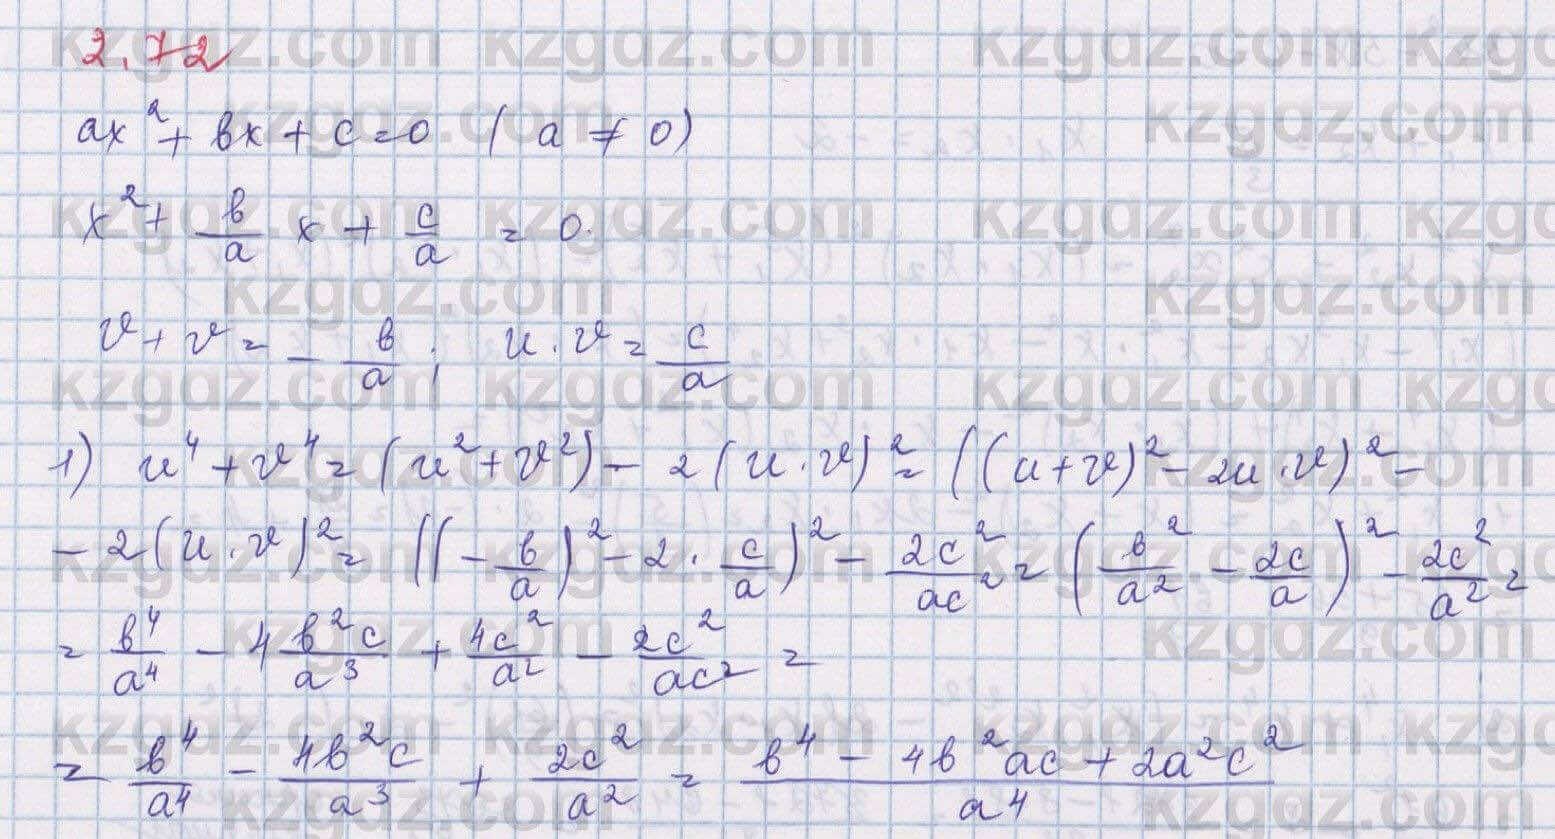 2.72
ax² + вx + c = 0 ( a ≠ 0)
x² + в/a x + c/a = 0.
v + v = - в/a ; u · v = c/a
1) u⁴ + v⁴ = (u² + v²) - 2(u · v)² = ((u + v)² - 2u · v)² -
- 2(u · v)² = ((- в/a)² - 2 · c/a)² - 2c²/ac² = (в²/a² - 2c/a)² - 2c²/a² =
= в⁴/a⁴ - 4 в²c/a³ + 4c²/a² - 2c²/ac² =
= в⁴/a⁴ - 4в²c/a³ + 2c²/a² = в⁴ - 4в²ac + 2a²c²/a⁴
kzgdz.com